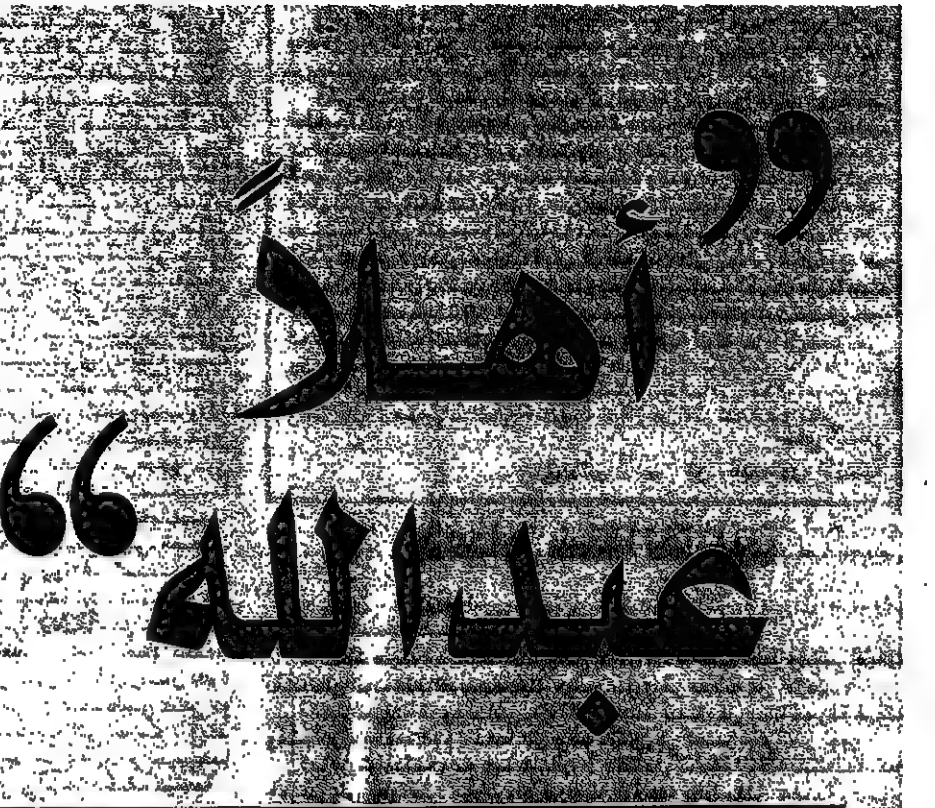 ”أهلاً
عبدالله“